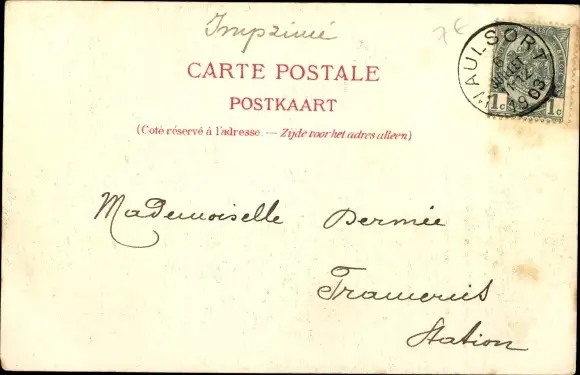 Imprimé
7€
CARTE POSTALE
POSTKAART
(Coté réservé à l'adresse. — Zijde voor het adres alleen)
WAULSORT
1903
1c 1c
Mademoiselle Dermée
Station